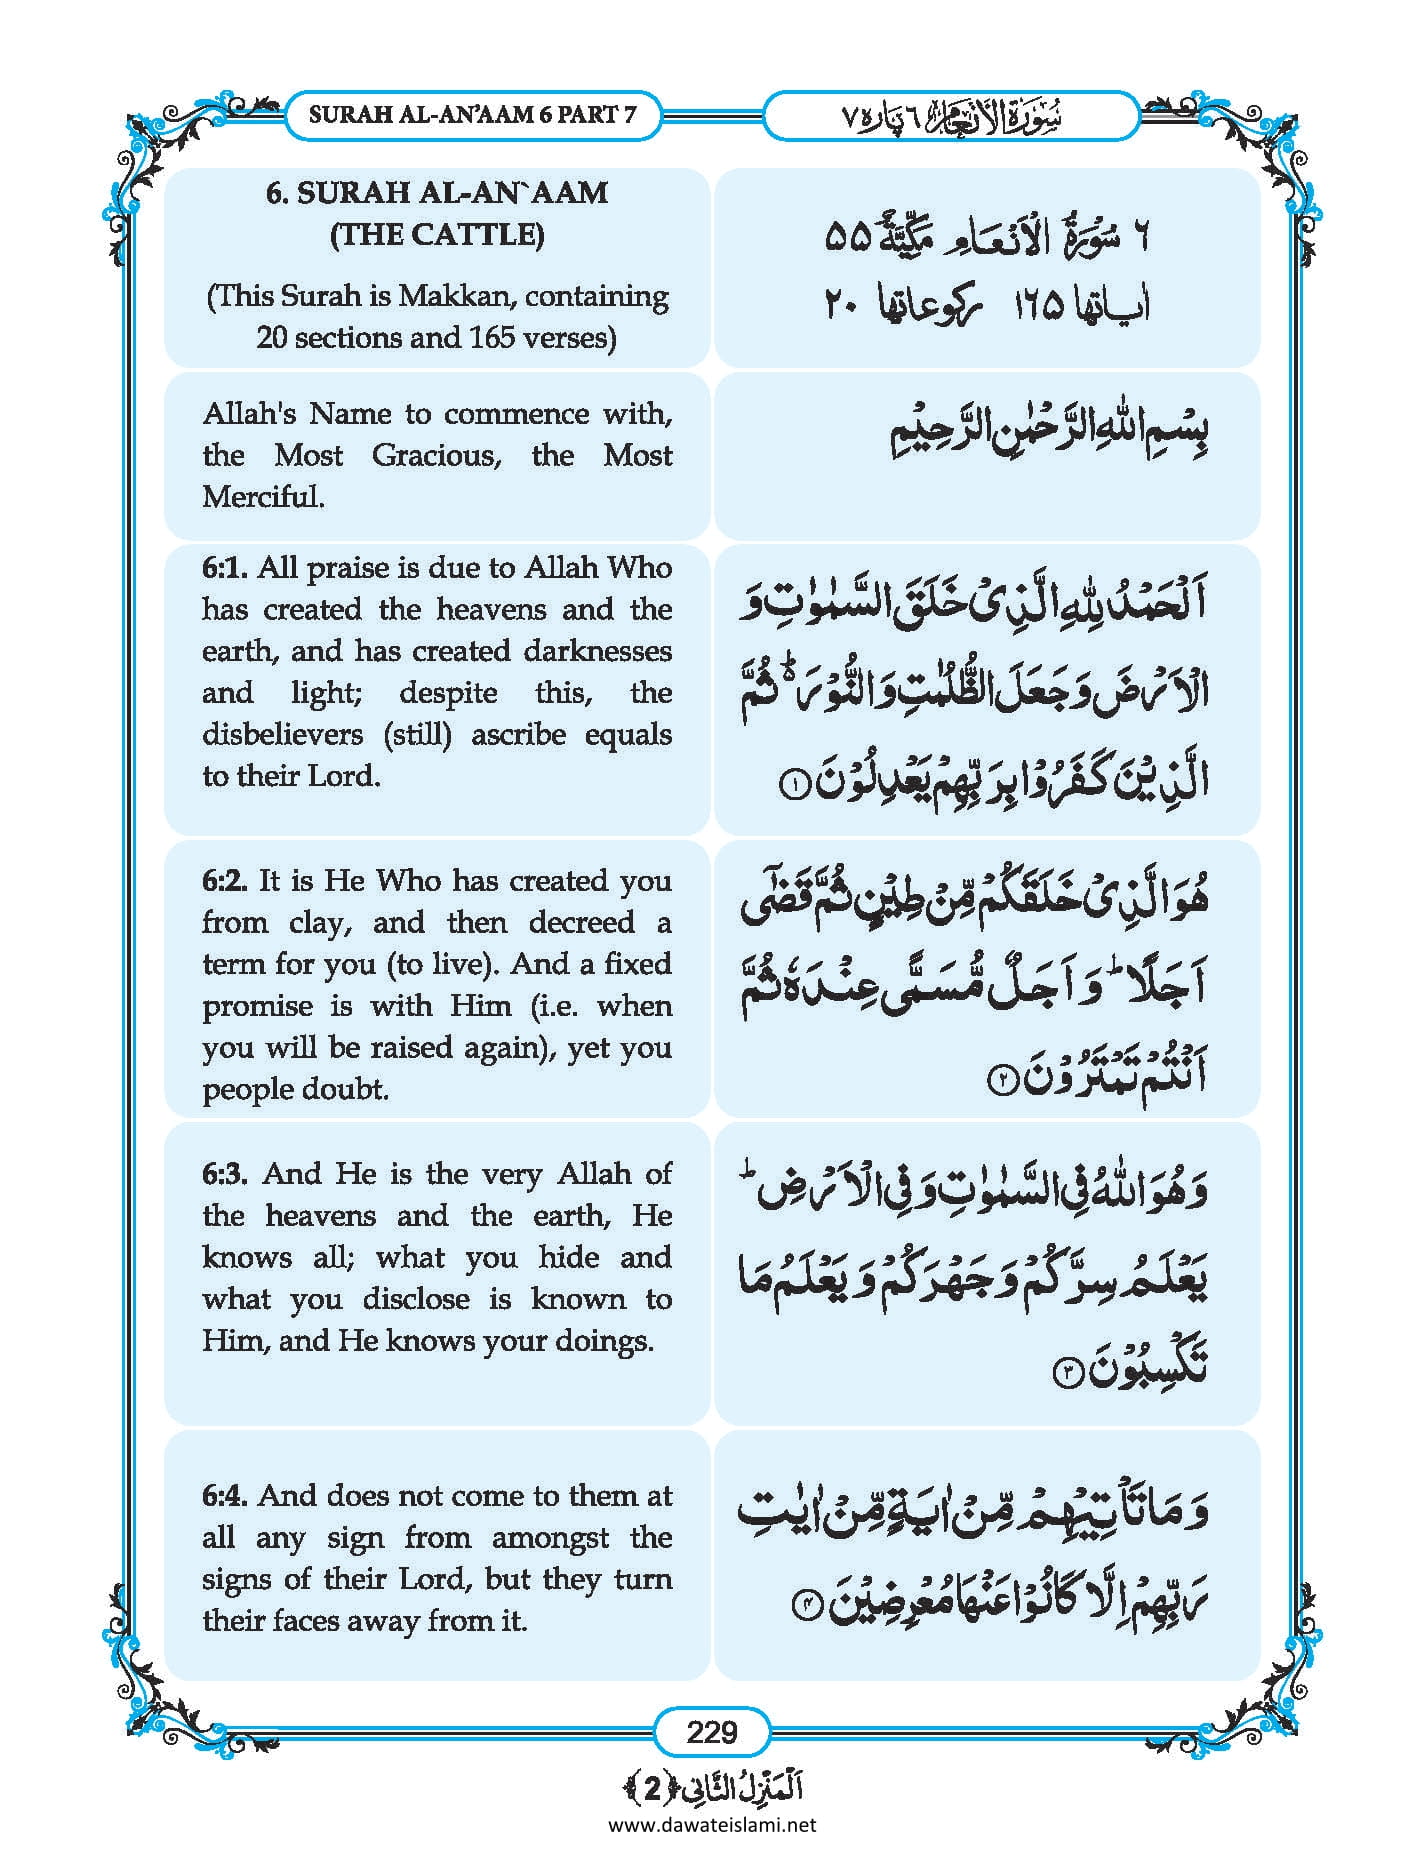 SURAH AL-AN’AAM 6 PART 7
سُوْرَةُ الْاَنْعَام ٦ پارہ ٧
6. SURAH AL-AN`AAM
(THE CATTLE)
(This Surah is Makkan, containing
20 sections and 165 verses)
٦ سُوْرَةُ الْاَنْعَامِ مَكِّيَّةٌ ۵۵
اٰیاتها ١٦۵ رکوعاتها ٢٠
Allah's Name to commence with,
the Most Gracious, the Most
Merciful.
بِسْمِ اللّٰهِ الرَّحْمٰنِ الرَّحِیْمِ
6:1. All praise is due to Allah Who
has created the heavens and the
earth, and has created darknesses
and light; despite this, the
disbelievers (still) ascribe equals
to their Lord.
اَلْحَمْدُ لِلّٰهِ الَّذِیْ خَلَقَ السَّمٰوٰتِ وَ
الْاَرْضَ وَ جَعَلَ الظُّلُمٰتِ وَ النُّوْرَ ۬ؕ ثُمَّ
الَّذِیْنَ كَفَرُوْا بِرَبِّهِمْ یَعْدِلُوْنَ ﴿۱﴾
6:2. It is He Who has created you
from clay, and then decreed a
term for you (to live). And a fixed
promise is with Him (i.e. when
you will be raised again), yet you
people doubt.
هُوَ الَّذِیْ خَلَقَكُمْ مِّنْ طِیْنٍ ثُمَّ قَضٰۤی
اَجَلًا ؕ وَ اَجَلٌ مُّسَمًّی عِنْدَهٗ ثُمَّ
اَنْتُمْ تَمْتَرُوْنَ ﴿۲﴾
6:3. And He is the very Allah of
the heavens and the earth, He
knows all; what you hide and
what you disclose is known to
Him, and He knows your doings.
وَ هُوَ اللّٰهُ فِی السَّمٰوٰتِ وَ فِی الْاَرْضِ ؕ
یَعْلَمُ سِرَّكُمْ وَ جَهْرَكُمْ وَ یَعْلَمُ مَا
تَكْسِبُوْنَ ﴿۳﴾
6:4. And does not come to them at
all any sign from amongst the
signs of their Lord, but they turn
their faces away from it.
وَ مَا تَاْتِیْهِمْ مِّنْ اٰیَةٍ مِّنْ اٰیٰتِ
رَبِّهِمْ اِلَّا كَانُوْا عَنْهَا مُعْرِضِیْنَ ﴿۴﴾
229
اَلْمَنْزِلُ الثَّانِی ﴿2﴾
www.dawateislami.net